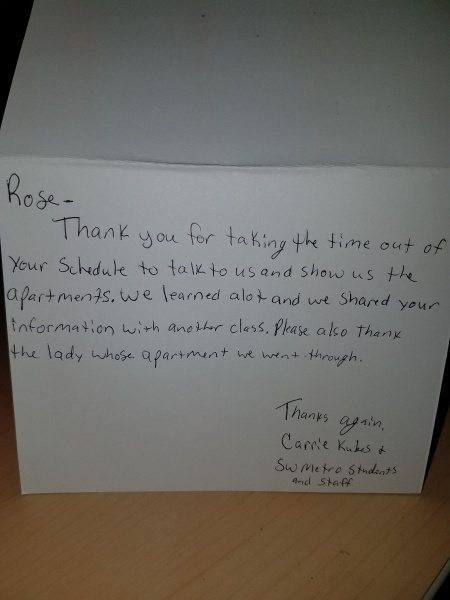 Rose-
Thank you for taking the time out of
your Schedule to talk to us and show us the
apartments. We learned alot and we shared your
information with another class. Please also thank
the lady whose apartment we went through.
Thanks again,
Carrie Kukes +
SW Metro Students
and Staff